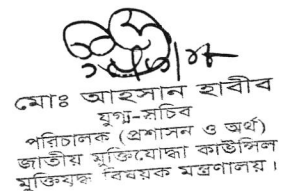 মোঃ আহসান হাবীব
যুগ্ম-সচিব
পরিচালক (প্রশাসন ও অর্থ)
জাতীয় মুক্তিযোদ্ধা কাউন্সিল
মুক্তিযুদ্ধ বিষয়ক মন্ত্রণালয়।